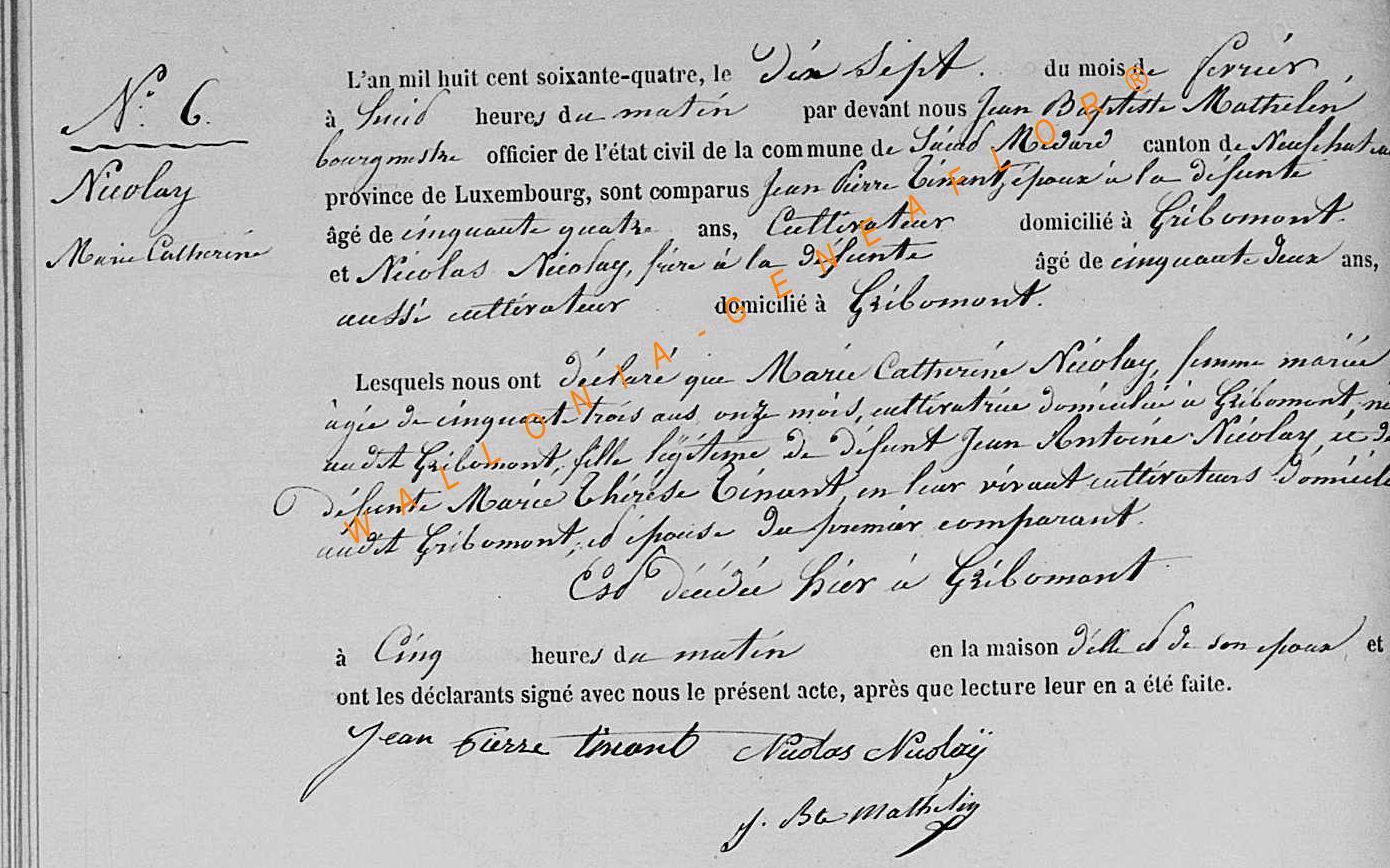 N.° 6.
Nicolay
Marie Catherine
L'an mil huit cent soixante-quatre, le dix sept. du mois de février
à heures du matin par devant nous Jean Baptiste Mathelin
bourgmestre officier de l'état civil de la commune de Saint Médard canton de Neufchateau
province de Luxembourg, sont comparus Jean Pierre Tinant, époux à la défunte
âgé de cinquante quatre ans, Cultivateur domicilié à Gribomont.
et Nicolas Nicolay, frère à la défunte âgé de cinquante deux ans,
aussi cultivateur domicilié à Gribomont.
Lesquels nous ont déclaré que Marie Catherine Nicolay, femme mariée
âgée de cinquante trois ans onze mois, cultivatrice domiciliée à Gribomont, né
audit Gribomont, fille légitime de défunt Jean Antoine Nicolay et de
défunte Marie Thérèse Tinant, en leur vivant cultivateurs domicilié
audit Gribomont, et épouse du premier comparant.
Est décédée hier à Gribomont
à Cinq heures du matin en la maison d'elle et de son époux, et
ont les déclarants signé avec nous le présent acte, après que lecture leur en a été faite.
Jean Pierre tinant Nicolas Nicolaÿ
J. Bte Mathelin
WALLONIA-GENEAFLOR®